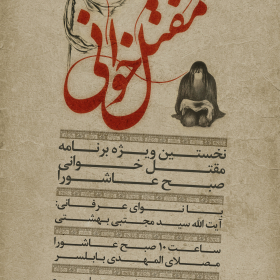 مقتل خوانی
نخستین ویژه برنامه
مقتل خوانی
صبح عاشورا
با نوای عرفانی:
آیت الله سید مجتبی بهشتی
ساعت ۱۰ صبح عاشورا
مصلای المهدی بابلسر